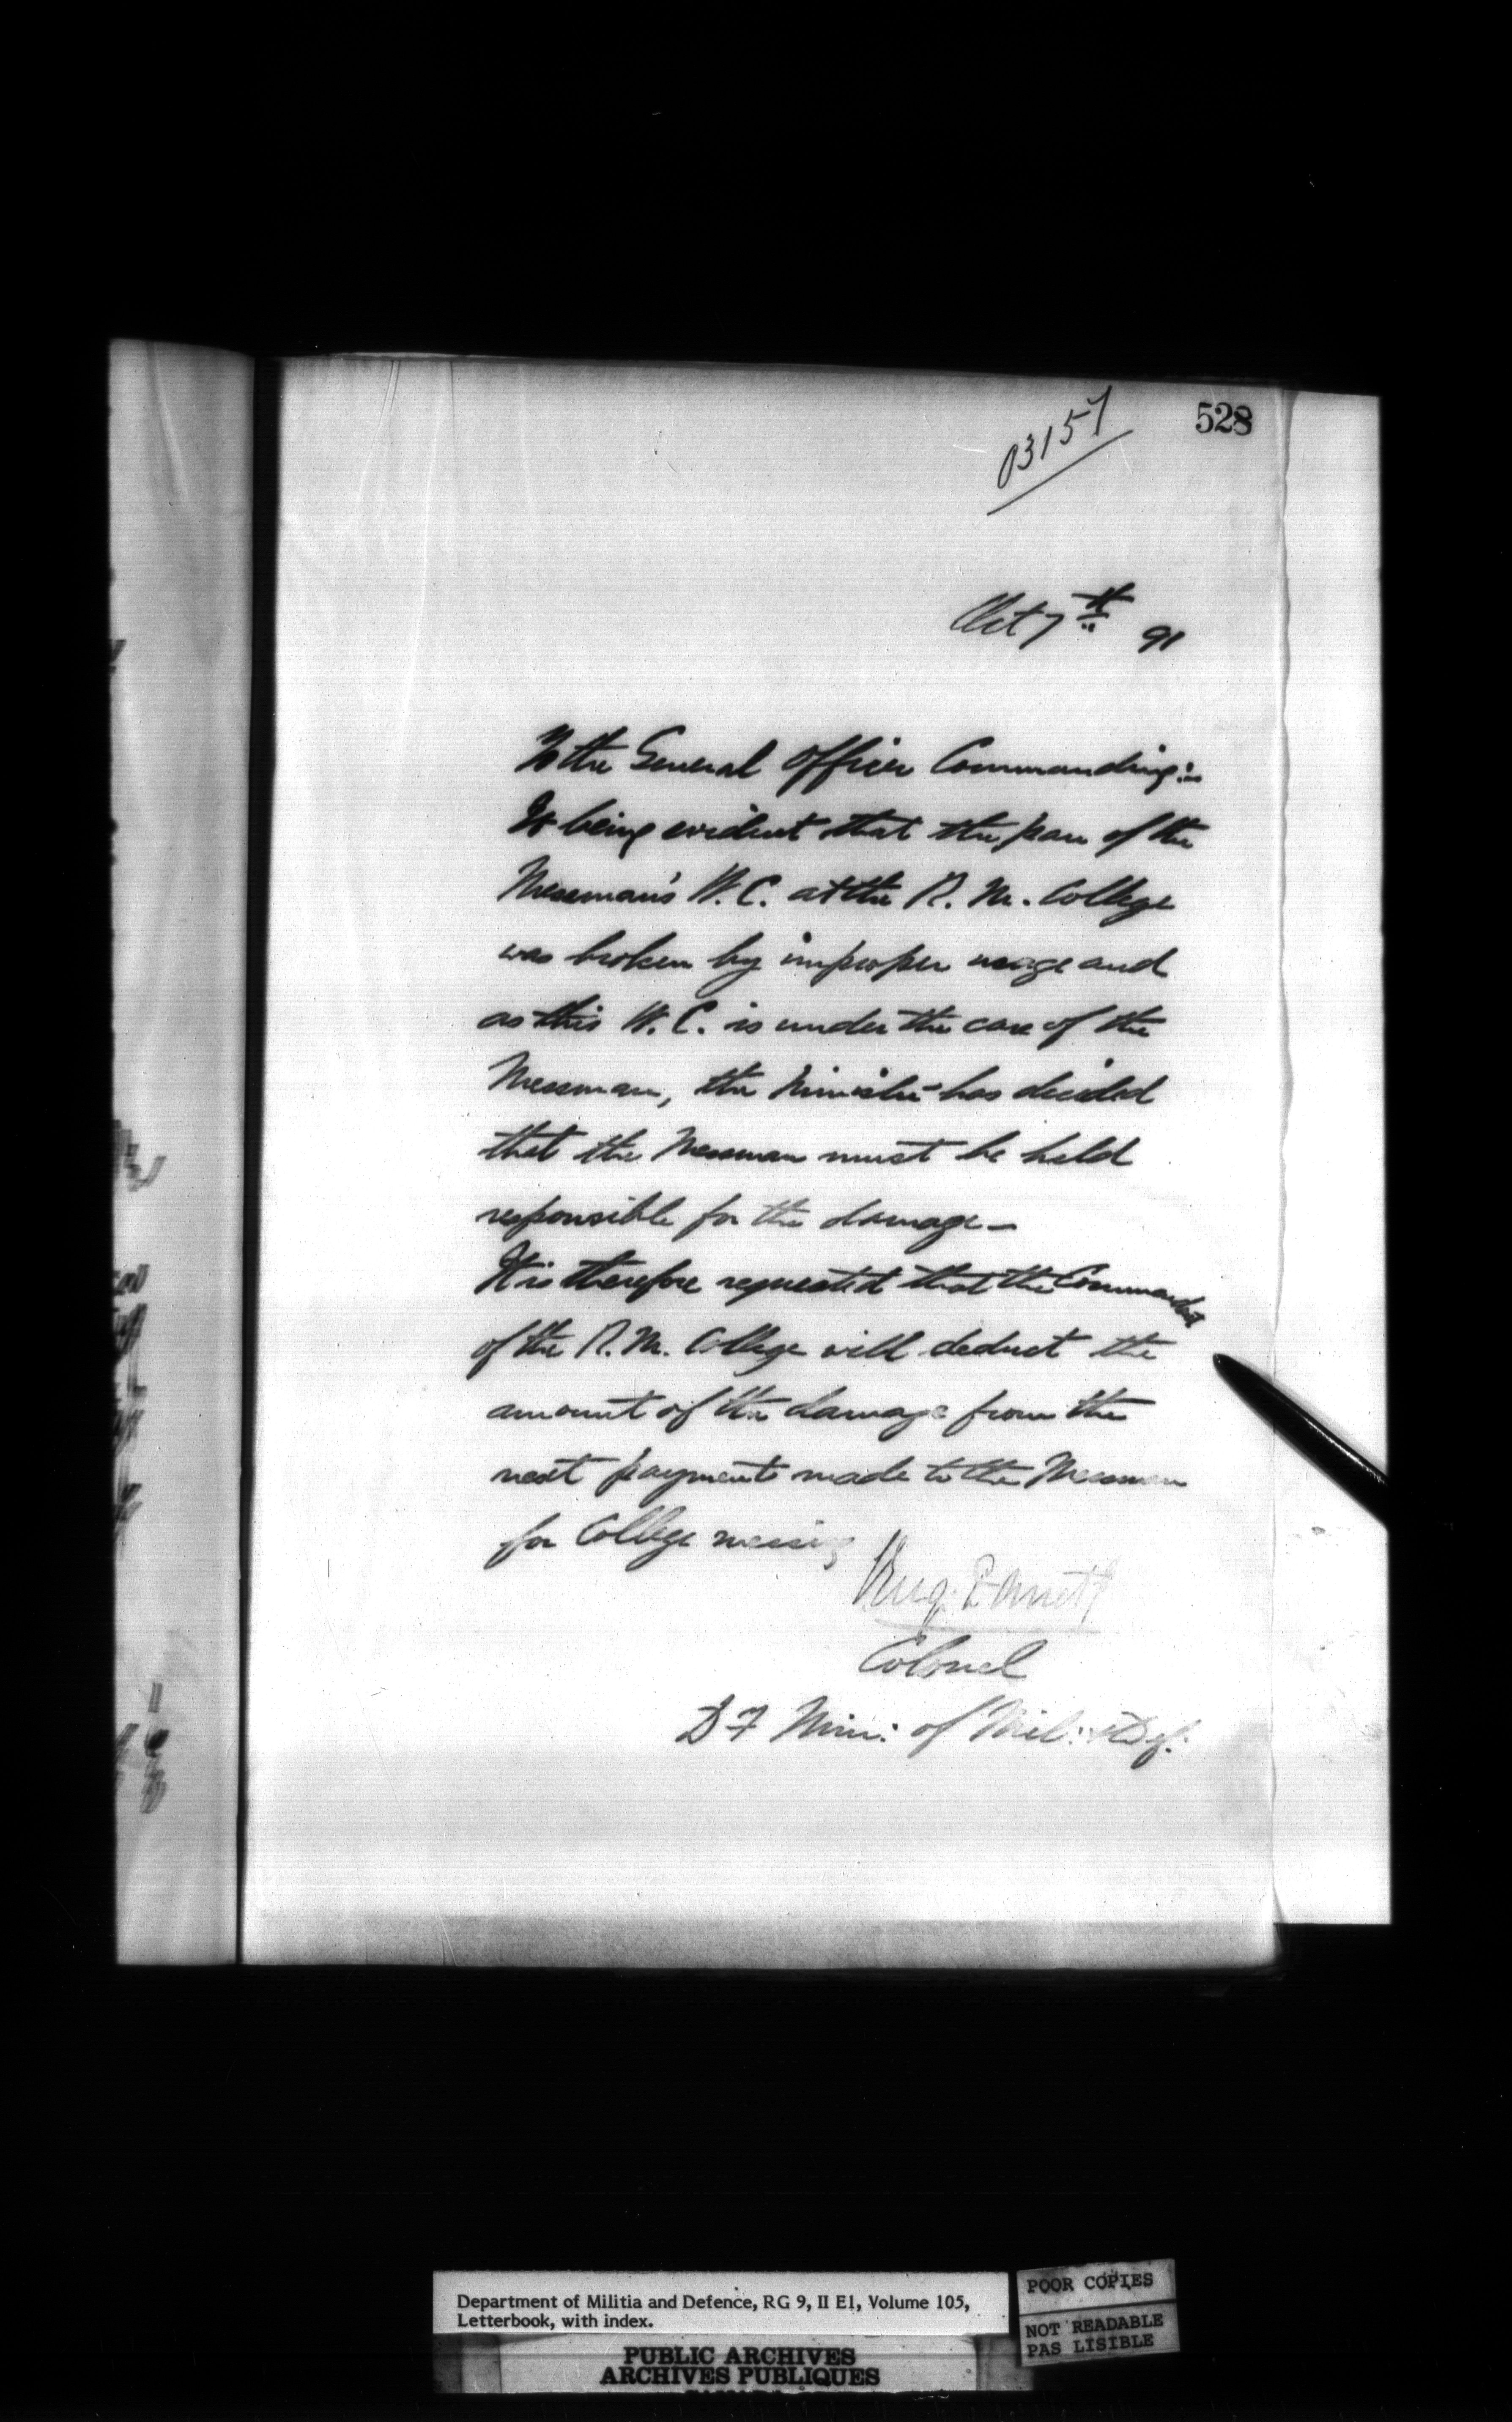 528
03157
Oct 7th 91
To the General Officer Commanding:-
It being evident that the pan of the
Messman's W.C. at the R. M. College
was broken by improper usage and
as this W.C. is under the care of the
Messman, the Minister has decided
that the Messman must be held
responsible for the damage-
It is therefore requested that the Commandant
of the R.M. College will deduct the
amount of the damage from the
next payment made to the Messman
for College messing
Colonel
D Min: of Mil: & Def:
Department of Militia and Defence, RG 9, II E1, Volume 105,
Letterbook, with index.
POOR COPIES
NOT READABLE
PAS LISIBLE
PUBLIC ARCHIVES
ARCHIVES PUBLIQUES